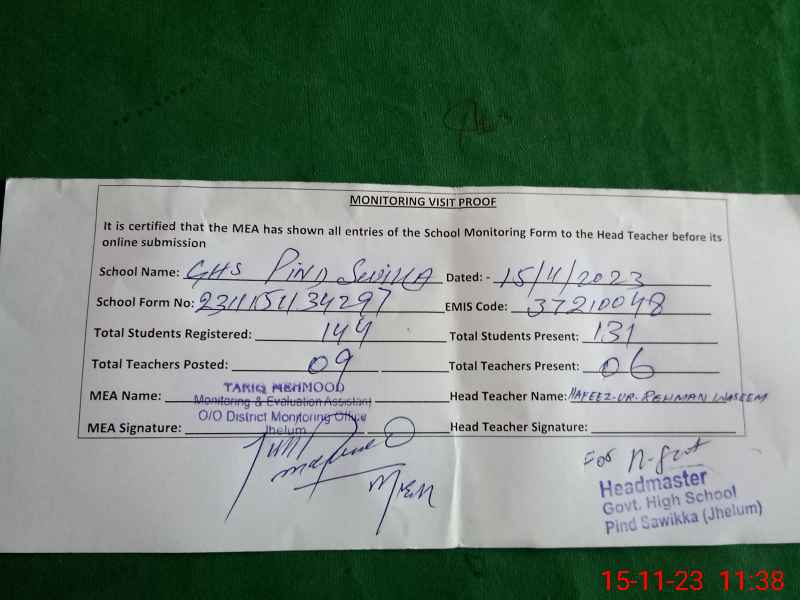 MONITORING VISIT PROOF
It is certified that the MEA has shown all entries of the School Monitoring Form to the Head Teacher before its
online submission
School Name: GHS PIND Dated: - 15/11/2023
School Form No: EMIS Code: 37210048
Total Students Registered: 144 Total Students Present: 131
Total Teachers Posted: 09 Total Teachers Present: 06
MEA Name: TARIQ MEHMOOD Head Teacher Name: HAFEEZ-UR-REHMAN WASEEM
Monitoring & Evaluation Assistant
O/O District Monitoring Office
Jhelum
MEA Signature: Head Teacher Signature:
For
Headmaster
Govt. High School
Pind Sawikka (Jhelum)
15-11-23 11:38